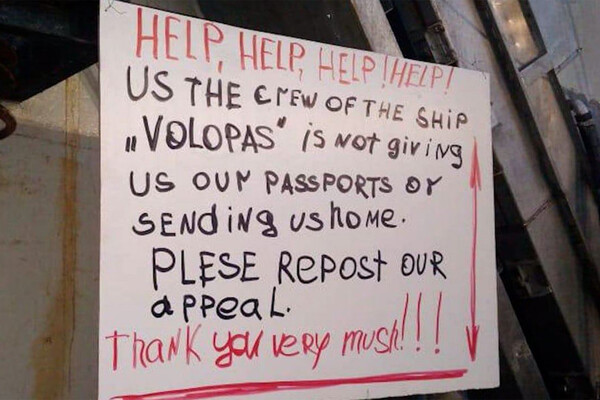 HELP, HELP, HELP! HELP!
US THE CrEW OF THE SHiP
„VOLOPAS" iS NOT giviNg
US OUr PASSPORTS Or
SENdiNg US HOME.
PLESE REPOST OUR
APPEAL.
THANK YOU VERY MUSH!!!